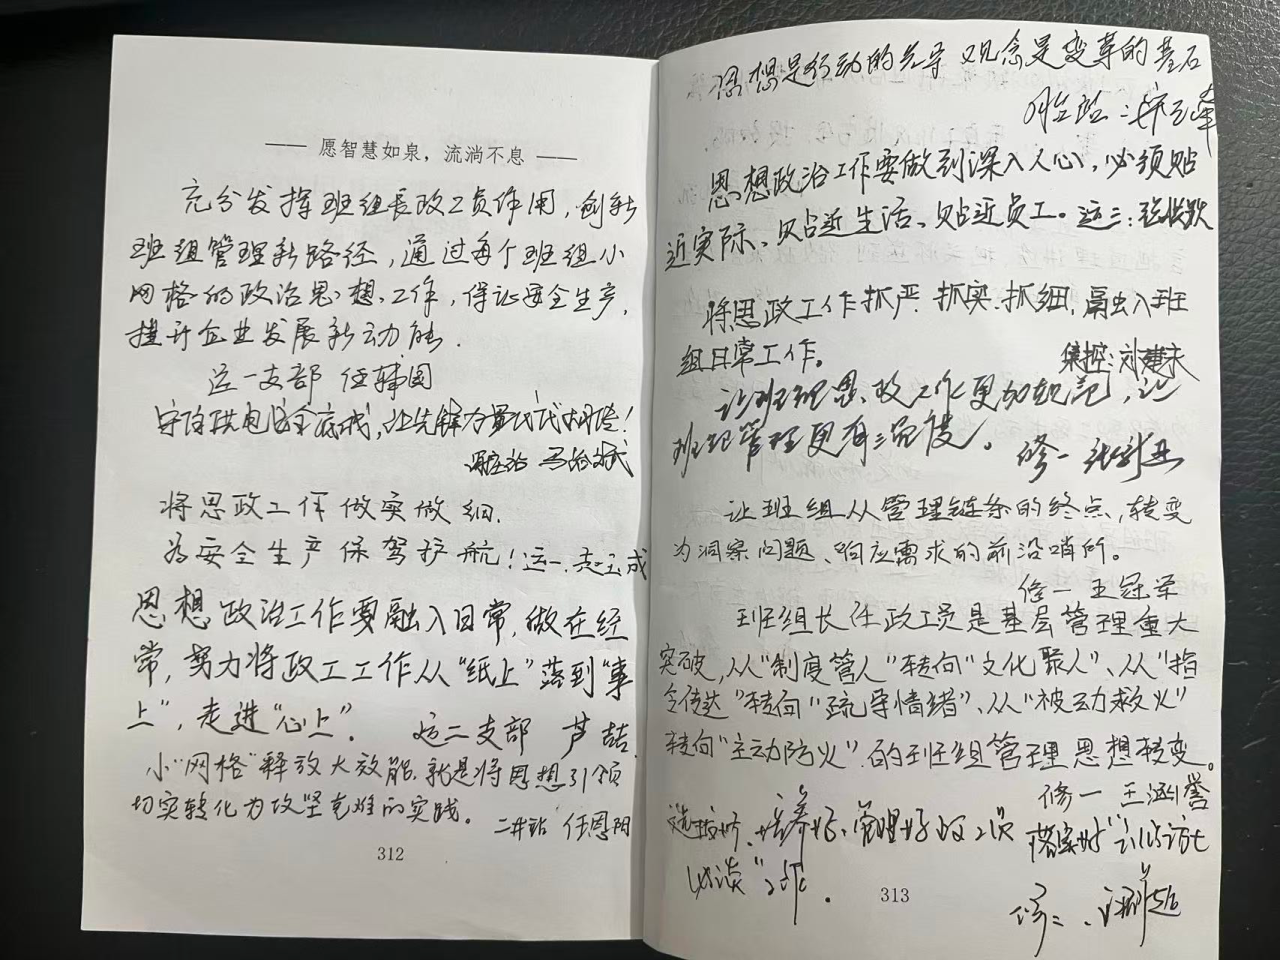 —— 愿智慧如泉，流淌不息 ——
充分发挥班组长政工员作用，创新
班组管理新路径，通过每个班组小
网格的政治思想工作，保证安全生产，
提升企业发展新动能.
运一支部 任辅国
守住供电安全底线，让先锋力量代代相传！
将思政工作做实做细.
为安全生产保驾护航！运一.赵玉成
思想政治工作要融入日常，做在经
常，努力将政工工作从“纸上”落到“事
上”，走进“心上”. 运二支部 芦喆
小“网格”释放大效能.就是将思想引领
切实转化为攻坚克难的实践。 任恩阳
312
思想是行动的先导 观念是变革的基石
思想政治工作要做到深入人心，必须贴
近实际、贴近生活、贴近员工。运三：
将思政工作抓严.抓实.抓细，融入班
组日常工作。 集控：刘建夫
让班组思政工作更加规范，让
班组管理更有温度。 修一
让班组从管理链条的终点，转变
为洞察问题、响应需求的前沿哨所。
修一 王冠军
班组长任政工员是基层管理重大
突破，从“制度管人”转向“文化聚人”、从“指
令传达”转向“疏导情绪”、从“被动救火”
转向“主动防火”.的班组管理思想转变。
修一 王涵誉
选拔好、培养好、管理好政工员 落实好
必谈”工作.
313
修二、